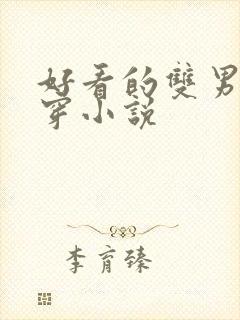 好看的雙男
穿小說
李育臻